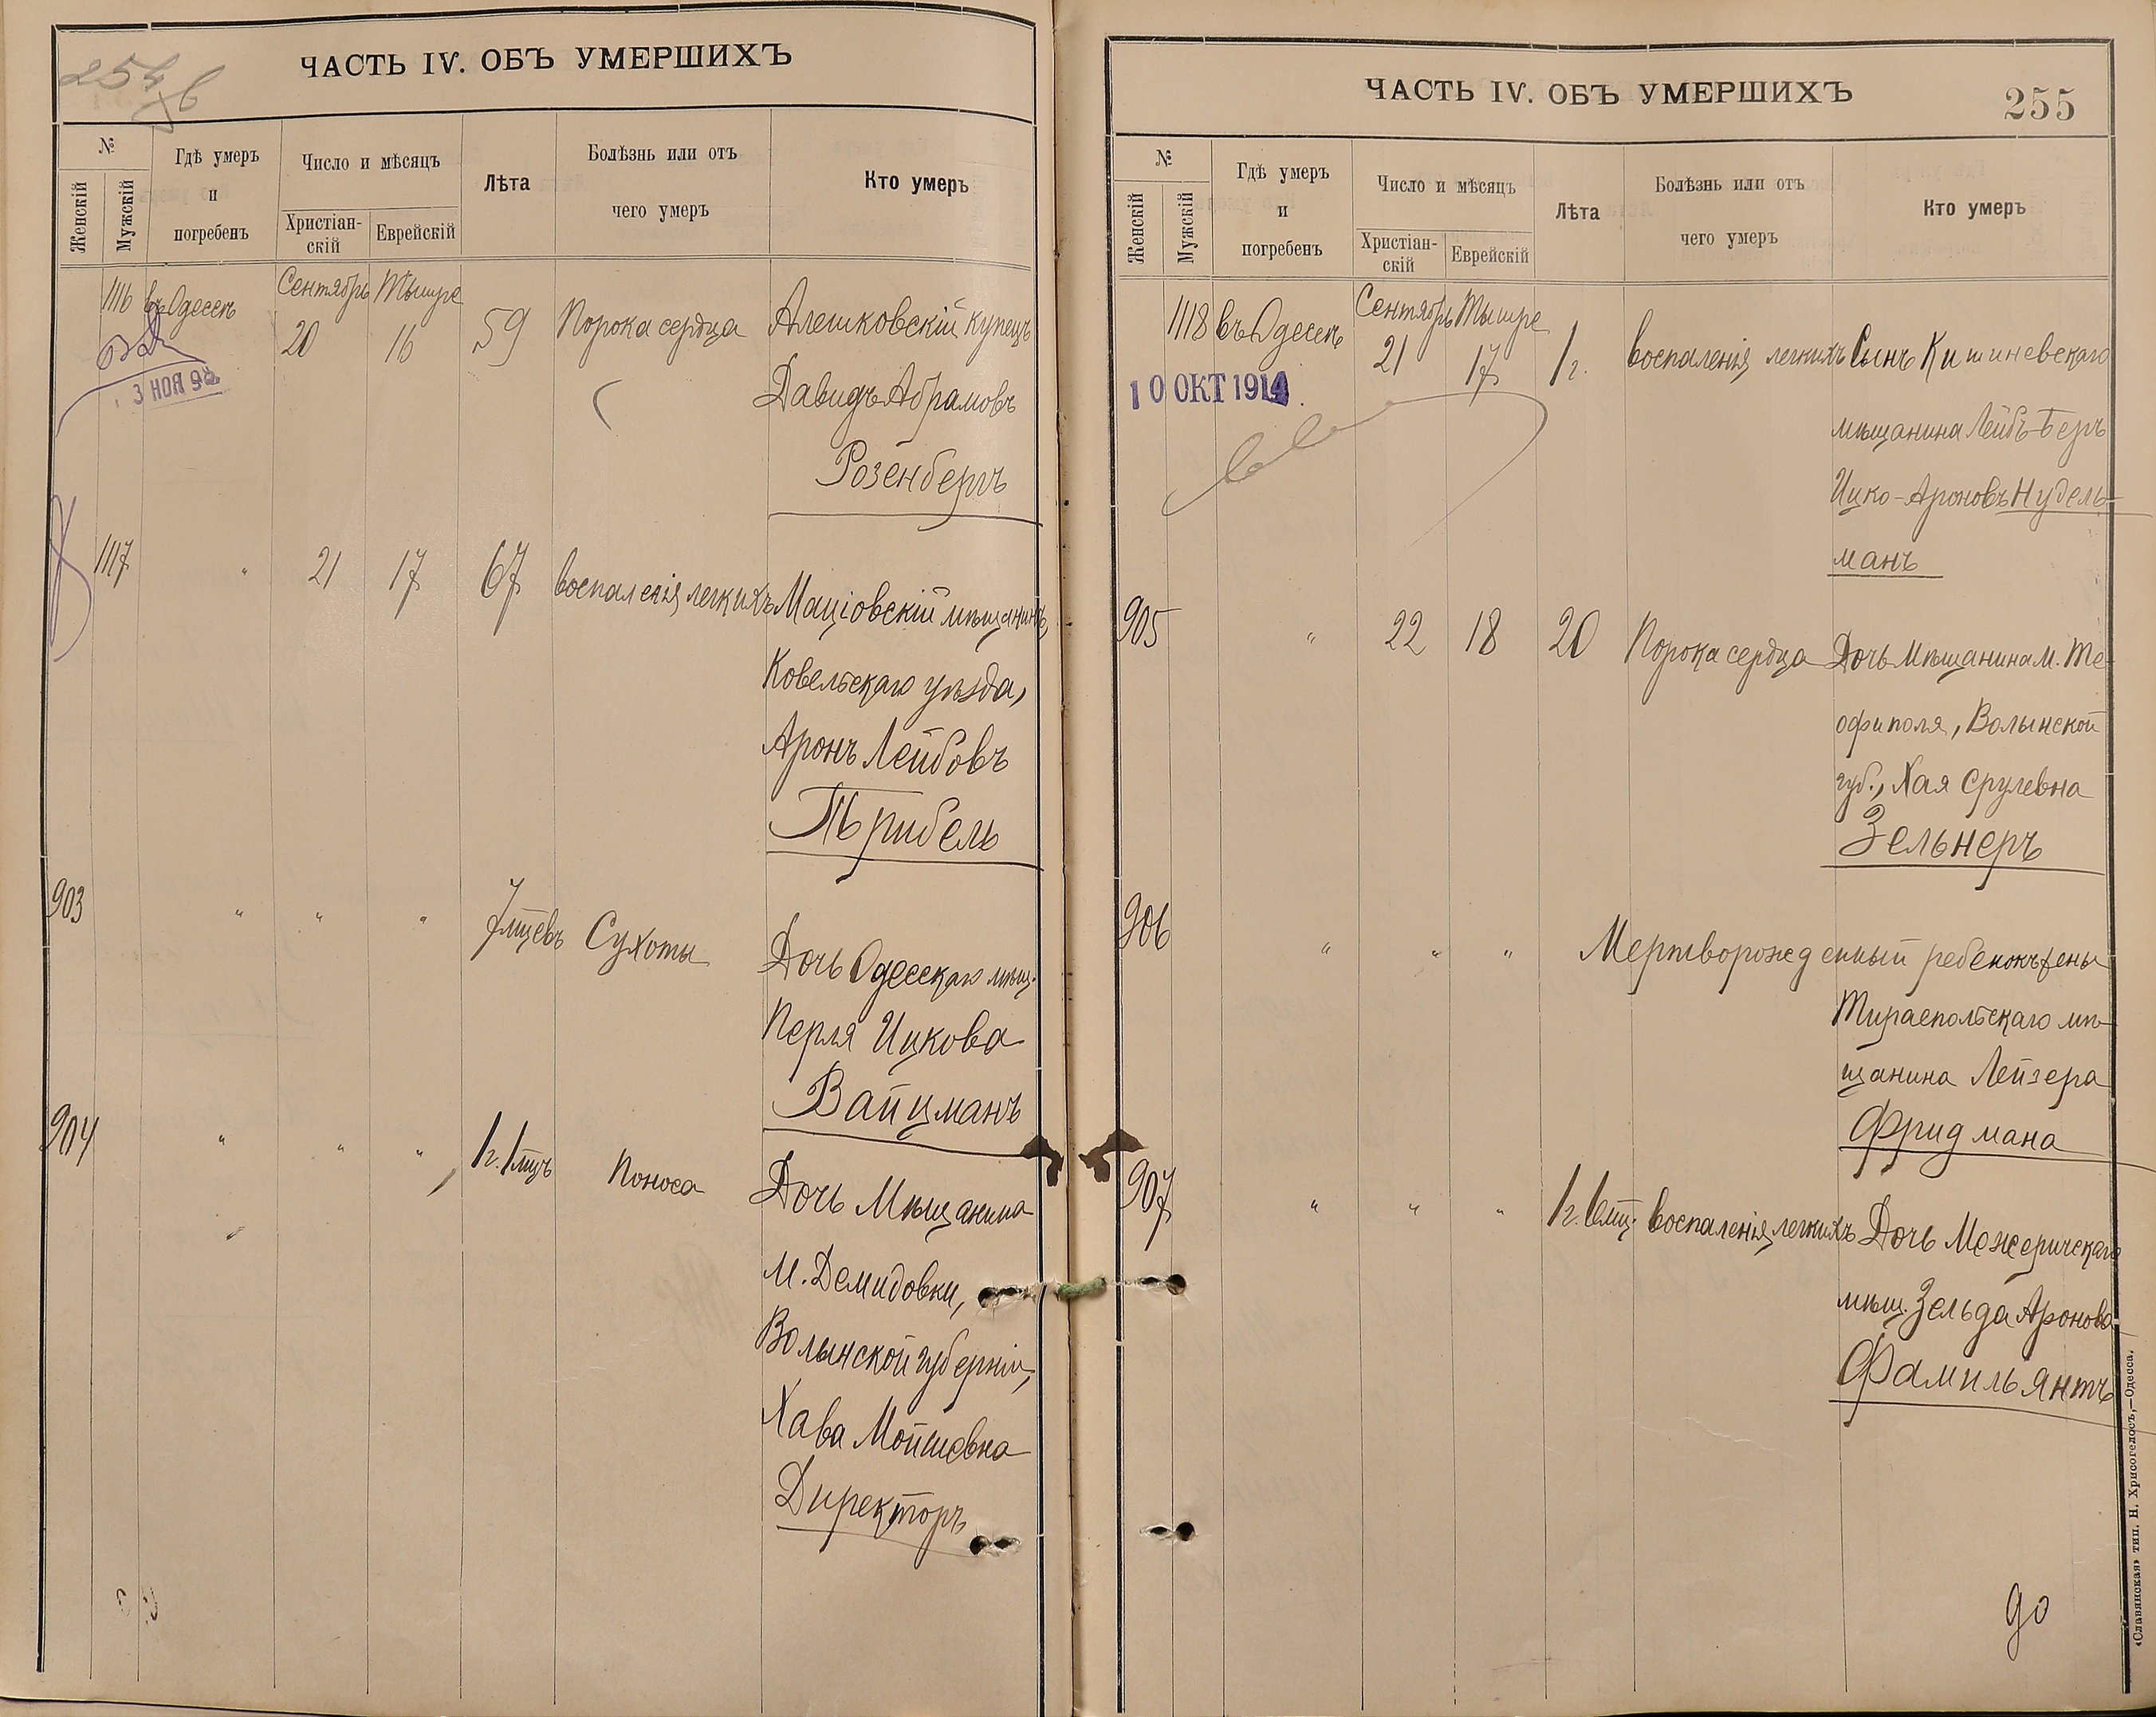 254
ЧАСТЬ IV. ОБЪ УМЕРШИХЪ
№
Женскій
Мужскій
Гдѣ умеръ
и
погребенъ
Число и мѣсяцъ
Христіан-
скій
Еврейскій
Лѣта
Болѣзнь или отъ
чего умеръ
Кто умеръ
1116 въ Одессѣ Сентябрь 20 Тышре 16 59 Порока сердца Алешковскій купецъ
Давидъ Абрамовъ
Розенбергъ
3 НОЯ
1117 " 21 17 67 воспаленія легкихъ Маціовскій мѣщанинъ,
Ковельскаго уѣзда,
Аронъ Лейбовъ
Трибель
903 " " " 7 мцевъ Сухоты Дочь Одесскаго мѣщ.
Перля Ицкова
Вайцманъ
904 " " " 1 г. 1 мцъ Поноса Дочь Мѣщанина
М. Демидовки,
Волынской губерніи,
Хава Мойшевна
Директоръ
ЧАСТЬ IV. ОБЪ УМЕРШИХЪ
255
№
Женскій
Мужскій
Гдѣ умеръ
и
погребенъ
Число и мѣсяцъ
Христіан-
скій
Еврейскій
Лѣта
Болѣзнь или отъ
чего умеръ
Кто умеръ
1118 въ Одессѣ Сентябрь 21 Тышре 17 1 г. воспаленія легкихъ Сынъ Кишиневскаго
мѣщанина Лейбъ-Беръ
Ицко-Ароновъ Нудель-
манъ
10 ОКТ 1914
905 " 22 18 20 Порока сердца Дочь Мѣщанина М. Те-
офиполя, Волынской
губ., Хая Срулевна
Зельнеръ
906 " " " Мертворожденный ребенокъ жены
Тираспольскаго мѣ-
щанина Лейзера
Фридмана
907 " " " 1 г. 6 мц. воспаленія легкихъ Дочь Межеричскаго
мѣщ. Зельда Аронова
Фамильянтъ
до
«Славянская» тип. Н. Хрисогелосъ,—Одесса.